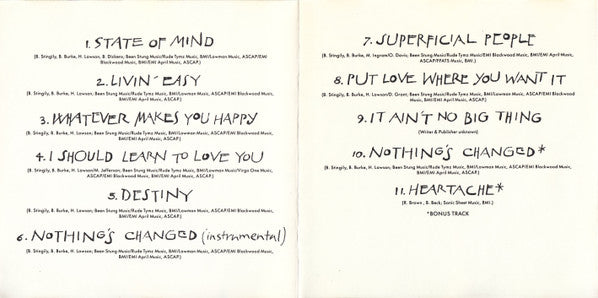 1. STATE OF MIND
(B. Stingily, B. Burke, H. Lowson, B. Dickens; Been Stung Music/Rude Tymz Music, BMI/Lowman Music, ASCAP/EMI
Blackwood Music, BMI/EMI April Music, ASCAP.)
2. LIVIN' EASY
(B. Stingily, B. Burke, H. Lowson; Been Stung Music/Rude Tymz Music, BMI/Lowman Music, ASCAP/EMI Blackwood Music,
BMI/EMI April Music, ASCAP.)
3. WHATEVER MAKES YOU HAPPY
(B. Stingily, B. Burke, H. Lowson; Been Stung Music/Rude Tymz Music, BMI/Lowman Music, ASCAP/EMI Blackwood Music,
BMI/EMI April Music, ASCAP.)
4. I SHOULD LEARN TO LOVE YOU
(B. Stingily, B. Burke, H. Lowson/M. Jefferson; Been Stung Music/Rude Tymz Music, BMI/Lowman Music/Virgo One Music,
ASCAP/EMI Blackwood Music, BMI/EMI April Music, ASCAP.)
5. DESTINY
(B. Stingily, B. Burke, H. Lowson; Been Stung Music/Rude Tymz Music, BMI/Lowman Music, ASCAP/EMI Blackwood Music,
BMI/EMI April Music, ASCAP.)
6. NOTHING'S CHANGED (instrumental)
(B. Stingily, B. Burke, H. Lowson; Been Stung Music/Rude Tymz Music, BMI/Lowman Music, ASCAP/EMI Blackwood Music,
BMI/EMI April Music, ASCAP.)
7. SUPERFICIAL PEOPLE
(B. Stingily, B. Burke, M. Ingram/O. Davis; Been Stung Music/Rude Tymz Music, BMI/EMI April Music,
ASCAP/PPATS Music, BMI.)
8. PUT LOVE WHERE YOU WANT IT
(B. Stingily, B. Burke, H. Lowson/D. Grant; Been Stung Music/Rude Tymz Music, BMI/Lowman Music, ASCAP/EMI Blackwood
Music, BMI/EMI April Music, ASCAP.)
9. IT AIN'T NO BIG THING
(Writer & Publisher unknown)
10. NOTHING'S CHANGED*
(B. Stingily, B. Burke, H. Lowson; Been Stung Music/Rude Tymz Music, BMI/Lowman Music, ASCAP/EMI Blackwood Music,
BMI/EMI April Music, ASCAP.)
11. HEARTACHE*
(R. Brown, B. Beck; Sonic Sheet Music, BMI.)
*BONUS TRACK